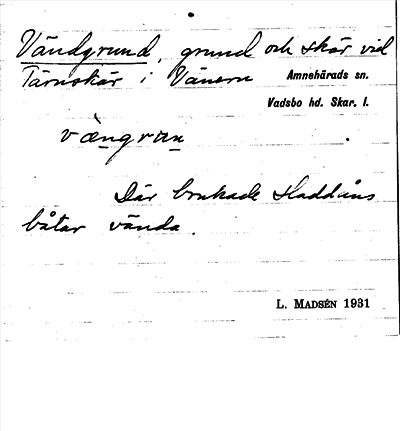 Vändgrund, grund och skär vid
Tärnskär i Vänern Amnehärads sn.
Vadsbo hd. Skar. l.
væ̀ngrun
Där brukade Haddåns
båtar vända.
L. MADSÉN 1931